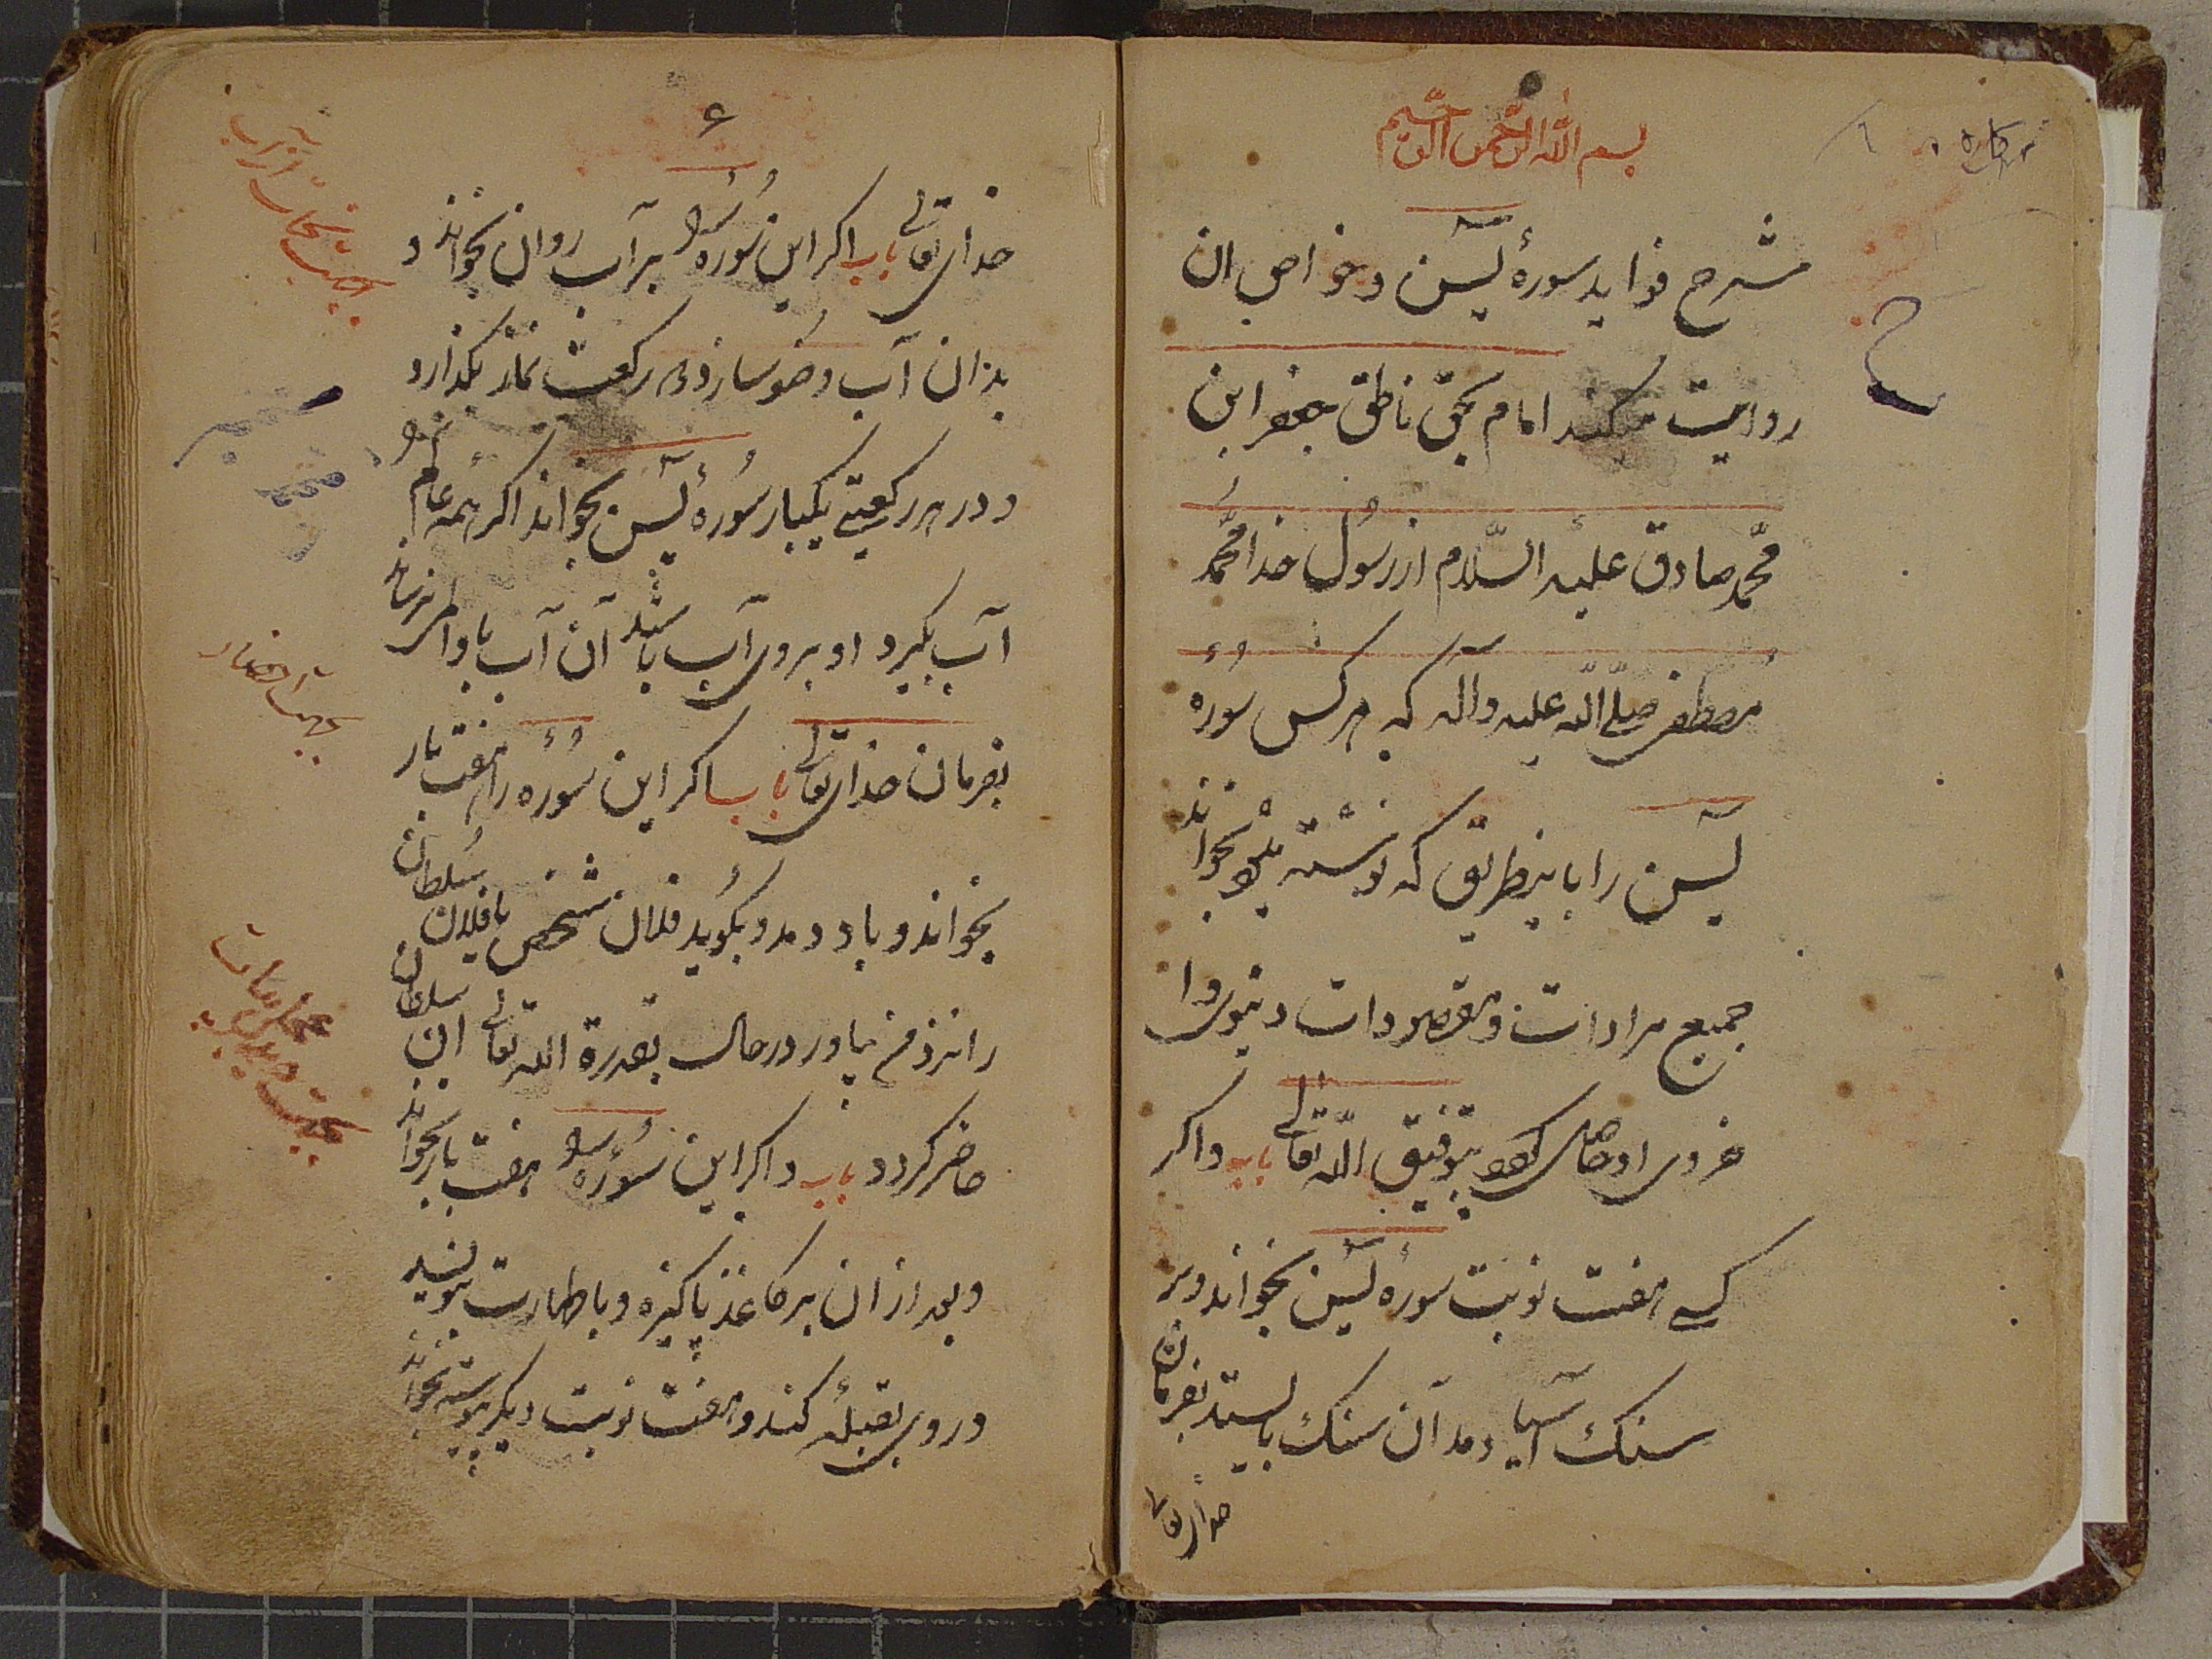 بسم الله الرحمن الرحیم
شرح فواید سورهٔ یٓسن و خواص ان
روایت میکند امام بحق ناطق جعفر ابن
محمّد صادق علیه السّلام از رسُول خدا محمّد
مصطفی صلّی اللّه علیه وآله که هر کس سُورهٔ
یٓسن را باینطریق که نوشته بخواند
جمیع مرادات و مقصودات دنیوی وا
خروی او حاصل بتوفیق اللّه تعالی باب واکر
کسی هفت نوبت سورهٔ یٓسن بخواند و بر
سنک آسیا دمد آن سنک بایستد بفرمان
خدای تعالی
۶
خدای تعالی باب اکر این سُوره را بر آب روان بخواند و
بدان آب وضو سازد دو رکعت نماز بکذارد
و در هر رکعتی یکبار سُورهٔ یٓسن بخواند اکر همه عالم را
آب بکیرد او بر روی آب باشد آن آب باو ضرر نرساند
بفرمان خدای تعالی باب اکر این سُوره را هفت بار
بخواند و باد دمد و بکوید فلان شخص یا فلان سُلطان
را نزد من بیاور در حال بقدرة اللّه تعالی ان سلطان
حاضر کردد باب و اکر این سُوره را هفت بار بخواند
و بعد از ان بر کاغذ پاکیزه و با طهارت بنویسد
و روی بقبله کند و هفت نوبت دیکر پیوسته بخواند
بجهت نجات از آب
بجهت احضار